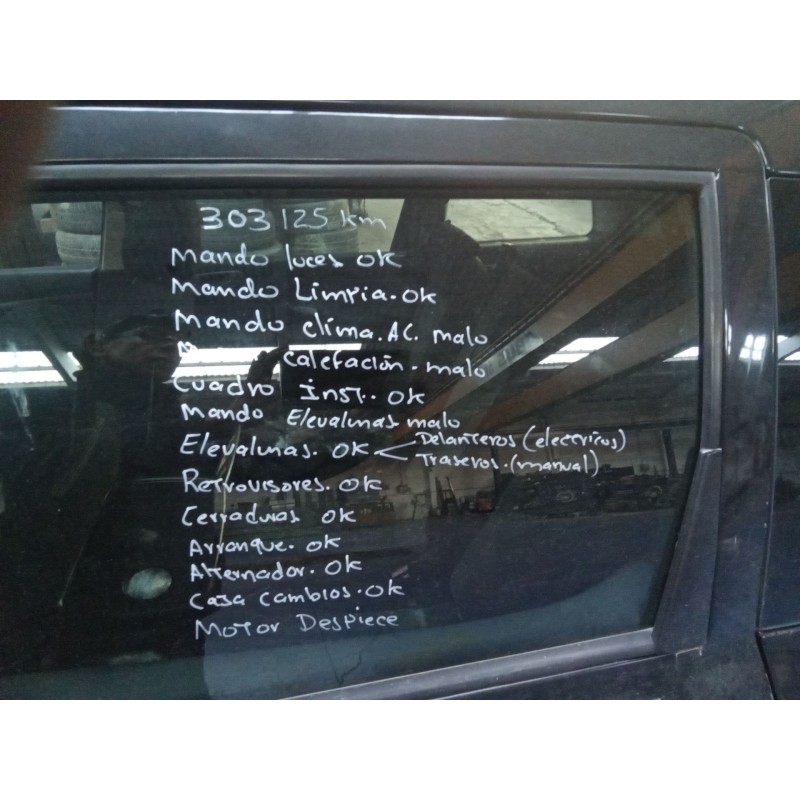 303125 km
Mando luces OK
Mando Limpia. OK
Mando clima. AC. malo
calefación. malo
Cuadro inst. OK
Mando Elevalunas malo
Elevalunas. OK < Delanteros (electricos)
Traseros. (manual)
Retrovisores. OK
Cerraduras OK
Arranque. OK
Alternador. OK
Casa cambios. OK
Motor Despiece